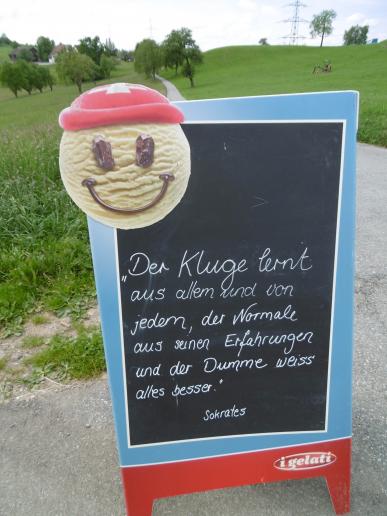 „Der Kluge lernt
aus allem und von
jedem, der Normale
aus seinen Erfahrungen
und der Dumme weiss
alles besser."
Sokrates
i gelati